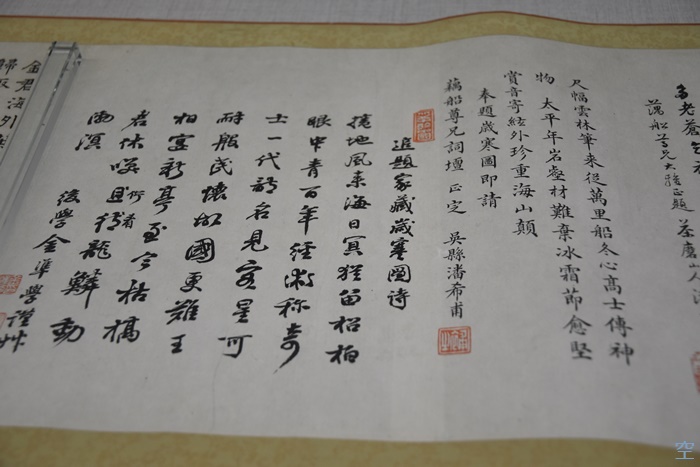 萬船
尺幅雲林筆來從萬里船冬心高士傳神
物 太平年岩壑材難棄冰霜節愈堅
賞音寄絃外珍重海山顛
奉題歲寒圖即請
藕船尊兄詞壇 正定 吳縣潘希甫
追題家藏歲寒圖詩
地風來海日冥猶留松柏
眼中青百年經術稱奇
士一代詩名見客星可
耐般民懷故國更難王
相宴新亭至今枯槁
君休嘆且看龍鱗動
南溟
後學金準學禮艸
金君海外
歸
空